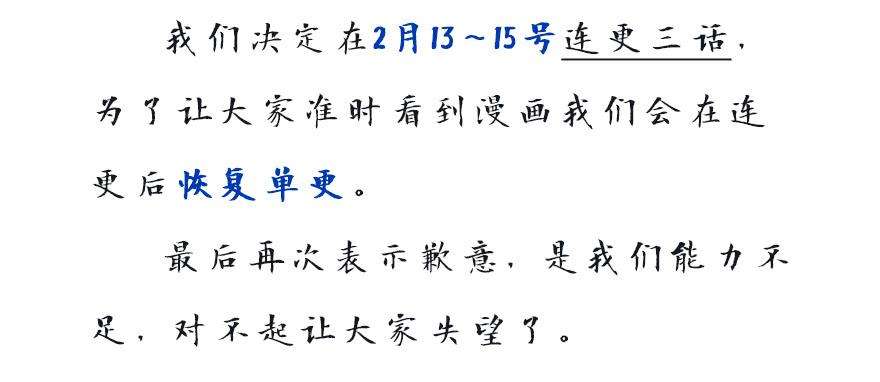 我们决定在2月13~15号连更三话，
为了让大家准时看到漫画我们会在连
更后恢复单更。
最后再次表示歉意，是我们能力不
足，对不起让大家失望了。